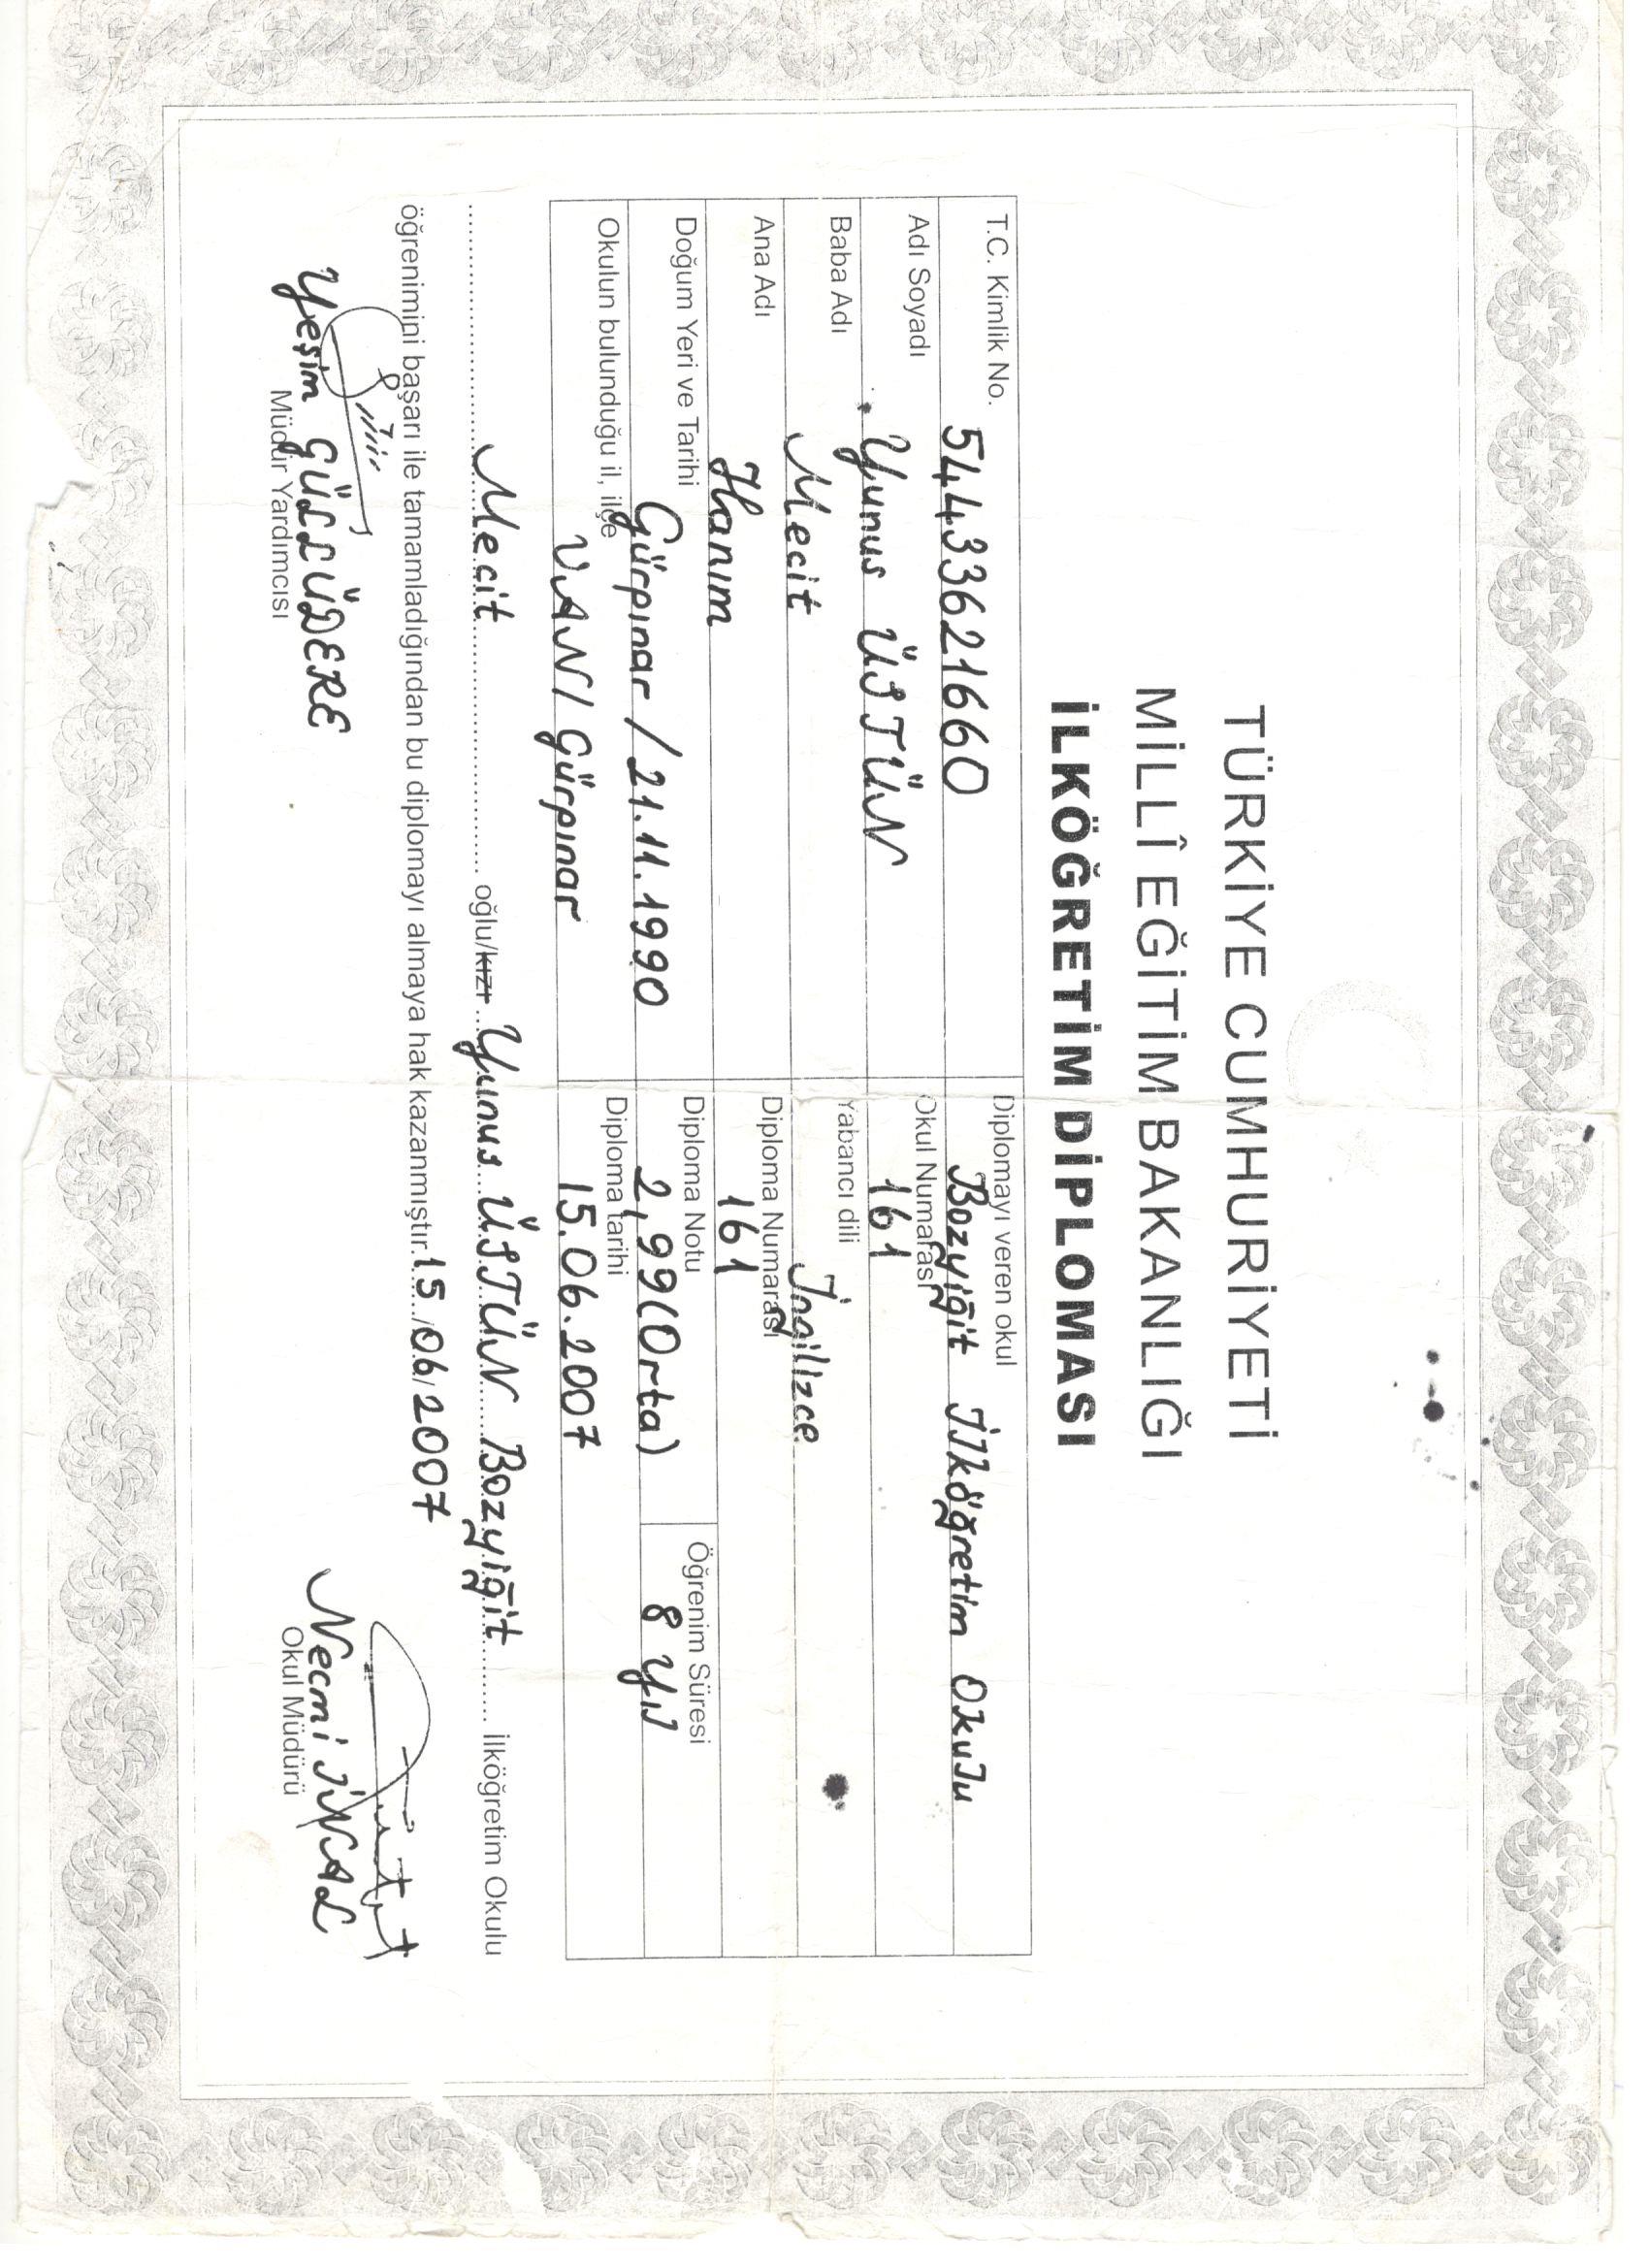 TÜRKİYE CUMHURİYETİ
MİLLÎ EĞİTİM BAKANLIĞI
İLKÖĞRETİM DİPLOMASI
T.C. Kimlik No. 54433621660
Diplomayı veren okul Bozyiğit İlköğretim Okulu
Adı Soyadı Yunus ÜSTÜN
Okul Numarası 161
Baba Adı Mecit
Yabancı dili İngilizce
Ana Adı Hanım
Diploma Numarası 161
Doğum Yeri ve Tarihi Gürpınar / 21.11.1990
Diploma Notu 2,99 (Orta)
Öğrenim Süresi 8 Yıl
Okulun bulunduğu il, ilçe VAN / Gürpınar
Diploma tarihi 15.06.2007
Mecit oğlu/kızı Yunus ÜSTÜN Bozyiğit İlköğretim Okulu
öğrenimini başarı ile tamamladığından bu diplomayı almaya hak kazanmıştır. 15/06/2007
Yeşim GÜLLÜDERE
Müdür Yardımcısı
Necmi İNAL
Okul Müdürü